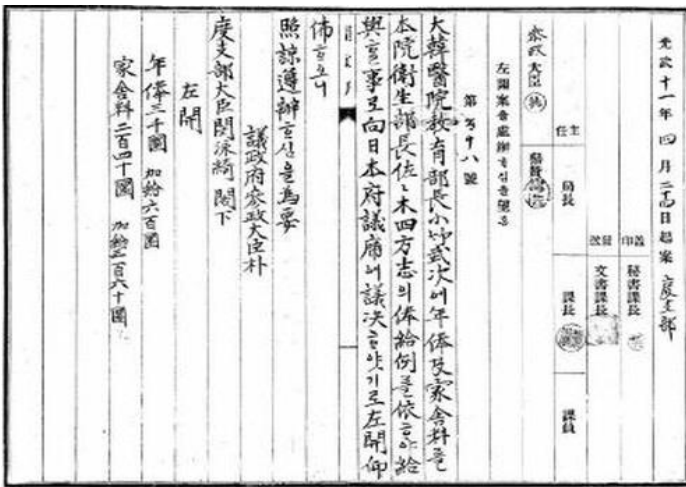 光武十一年 四月二十四日起案 度支部
蓋印 秘書課長
發送 文書課長
主任 局長 課長 課員
參政大臣
左開案을處辦하심을望홈
第 九十八號
大韓醫院教育部長小竹武次에年俸及家舍料를
本院衛生部長佐〻木四方志의俸給例를依하야給
與할事로向日本府議席에議決하얏기로左開仰
佈하오니
照諒遵辦하심을為要
議政府參政大臣朴
度支部大臣閔泳綺 閣下
左開
年俸三千圜 加給六百圜
家舍料二百四十圜 加給三百六十圜